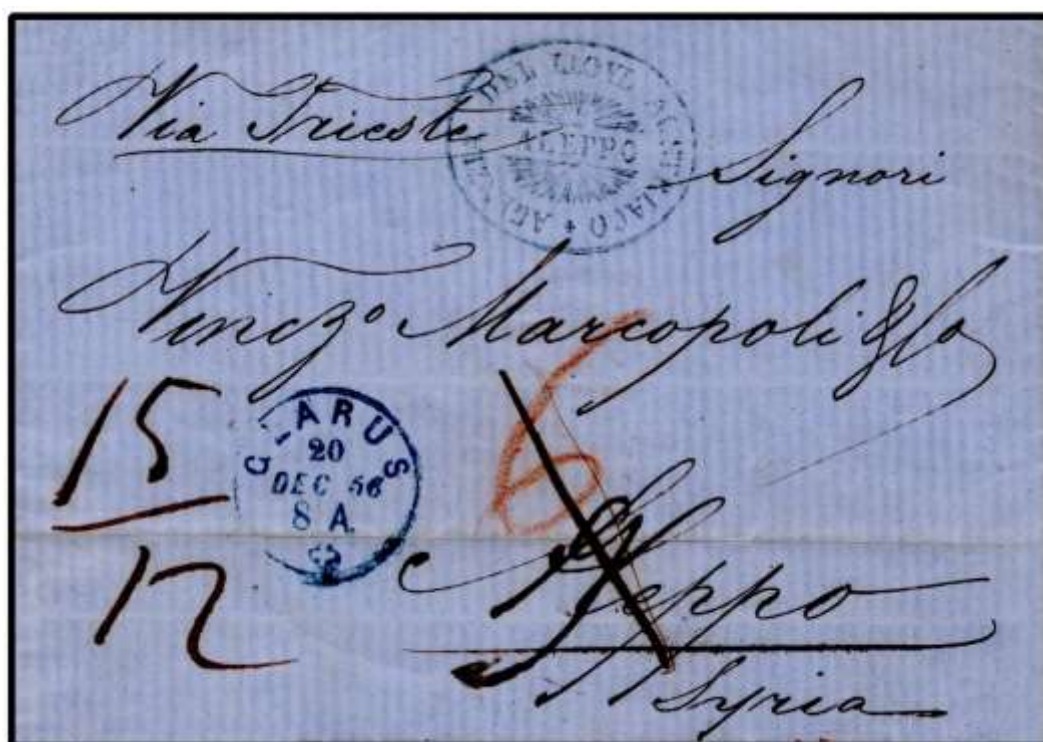 Via Trieste
AGENZIA DEL LLOYD AUSTRIACO
ALEPPO
Signori
Vinczo Marcopoli & Co
15
12
GLARUS
20
DEC 56
8 A.
6
Aleppo
Syria